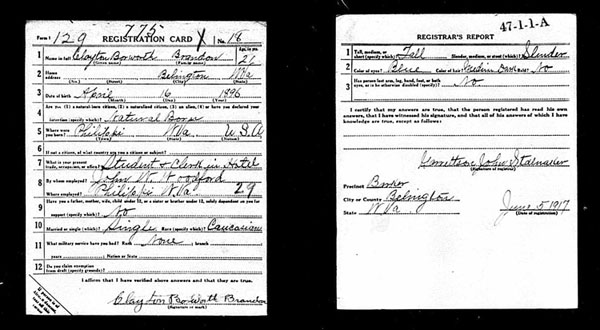 775
Form 1 129 REGISTRATION CARD X No. 18
1 Name in full Clayton Bosworth Brandon Age, in yrs. 21
(Given name) (Family name)
2 Home address Belington WVa
(No.) (Street) (City) (State)
3 Date of birth April 16 1896
(Month) (Day) (Year)
4 Are you (1) a natural-born citizen, (2) a naturalized citizen, (3) an alien, (4) or have you declared your
intention (specify which)? Natural Born
5 Where were you born? Philippi WVa. U.S.A
(Town) (State) (Nation)
6 If not a citizen, of what country are you a citizen or subject?
7 What is your present trade, occupation, or office? Student & Clerk in Hotel
8 By whom employed? John W. Woodford
Where employed? Philippi WVa. 29
9 Have you a father, mother, wife, child under 12, or a sister or brother under 12, solely dependent on you for
support (specify which)? No
10 Married or single (which)? Single Race (specify which)? Caucasian
11 What military service have you had? Rank None ; branch
years ; Nation or State
12 Do you claim exemption
from draft (specify grounds)?
I affirm that I have verified above answers and that they are true.
Clayton Bosworth Brandon
(Signature or mark)
47-1-1-A
REGISTRAR'S REPORT
1 Tall, medium, or short (specify which)? Tall Slender, medium, or stout (which)? Slender
2 Color of eyes? Blue Color of hair? Medium Bald? No
3 Has person lost arm, leg, hand, foot, or both
eyes, or is he otherwise disabled (specify)? No
I certify that my answers are true, that the person registered has read his own
answers, that I have witnessed his signature, and that all of his answers of which I have
knowledge are true, except as follows:
John Stalnaker
(Signature of registrar)
Precinct Barker
City or County Belington
State WVa
June 5 1917
(Date of registration)